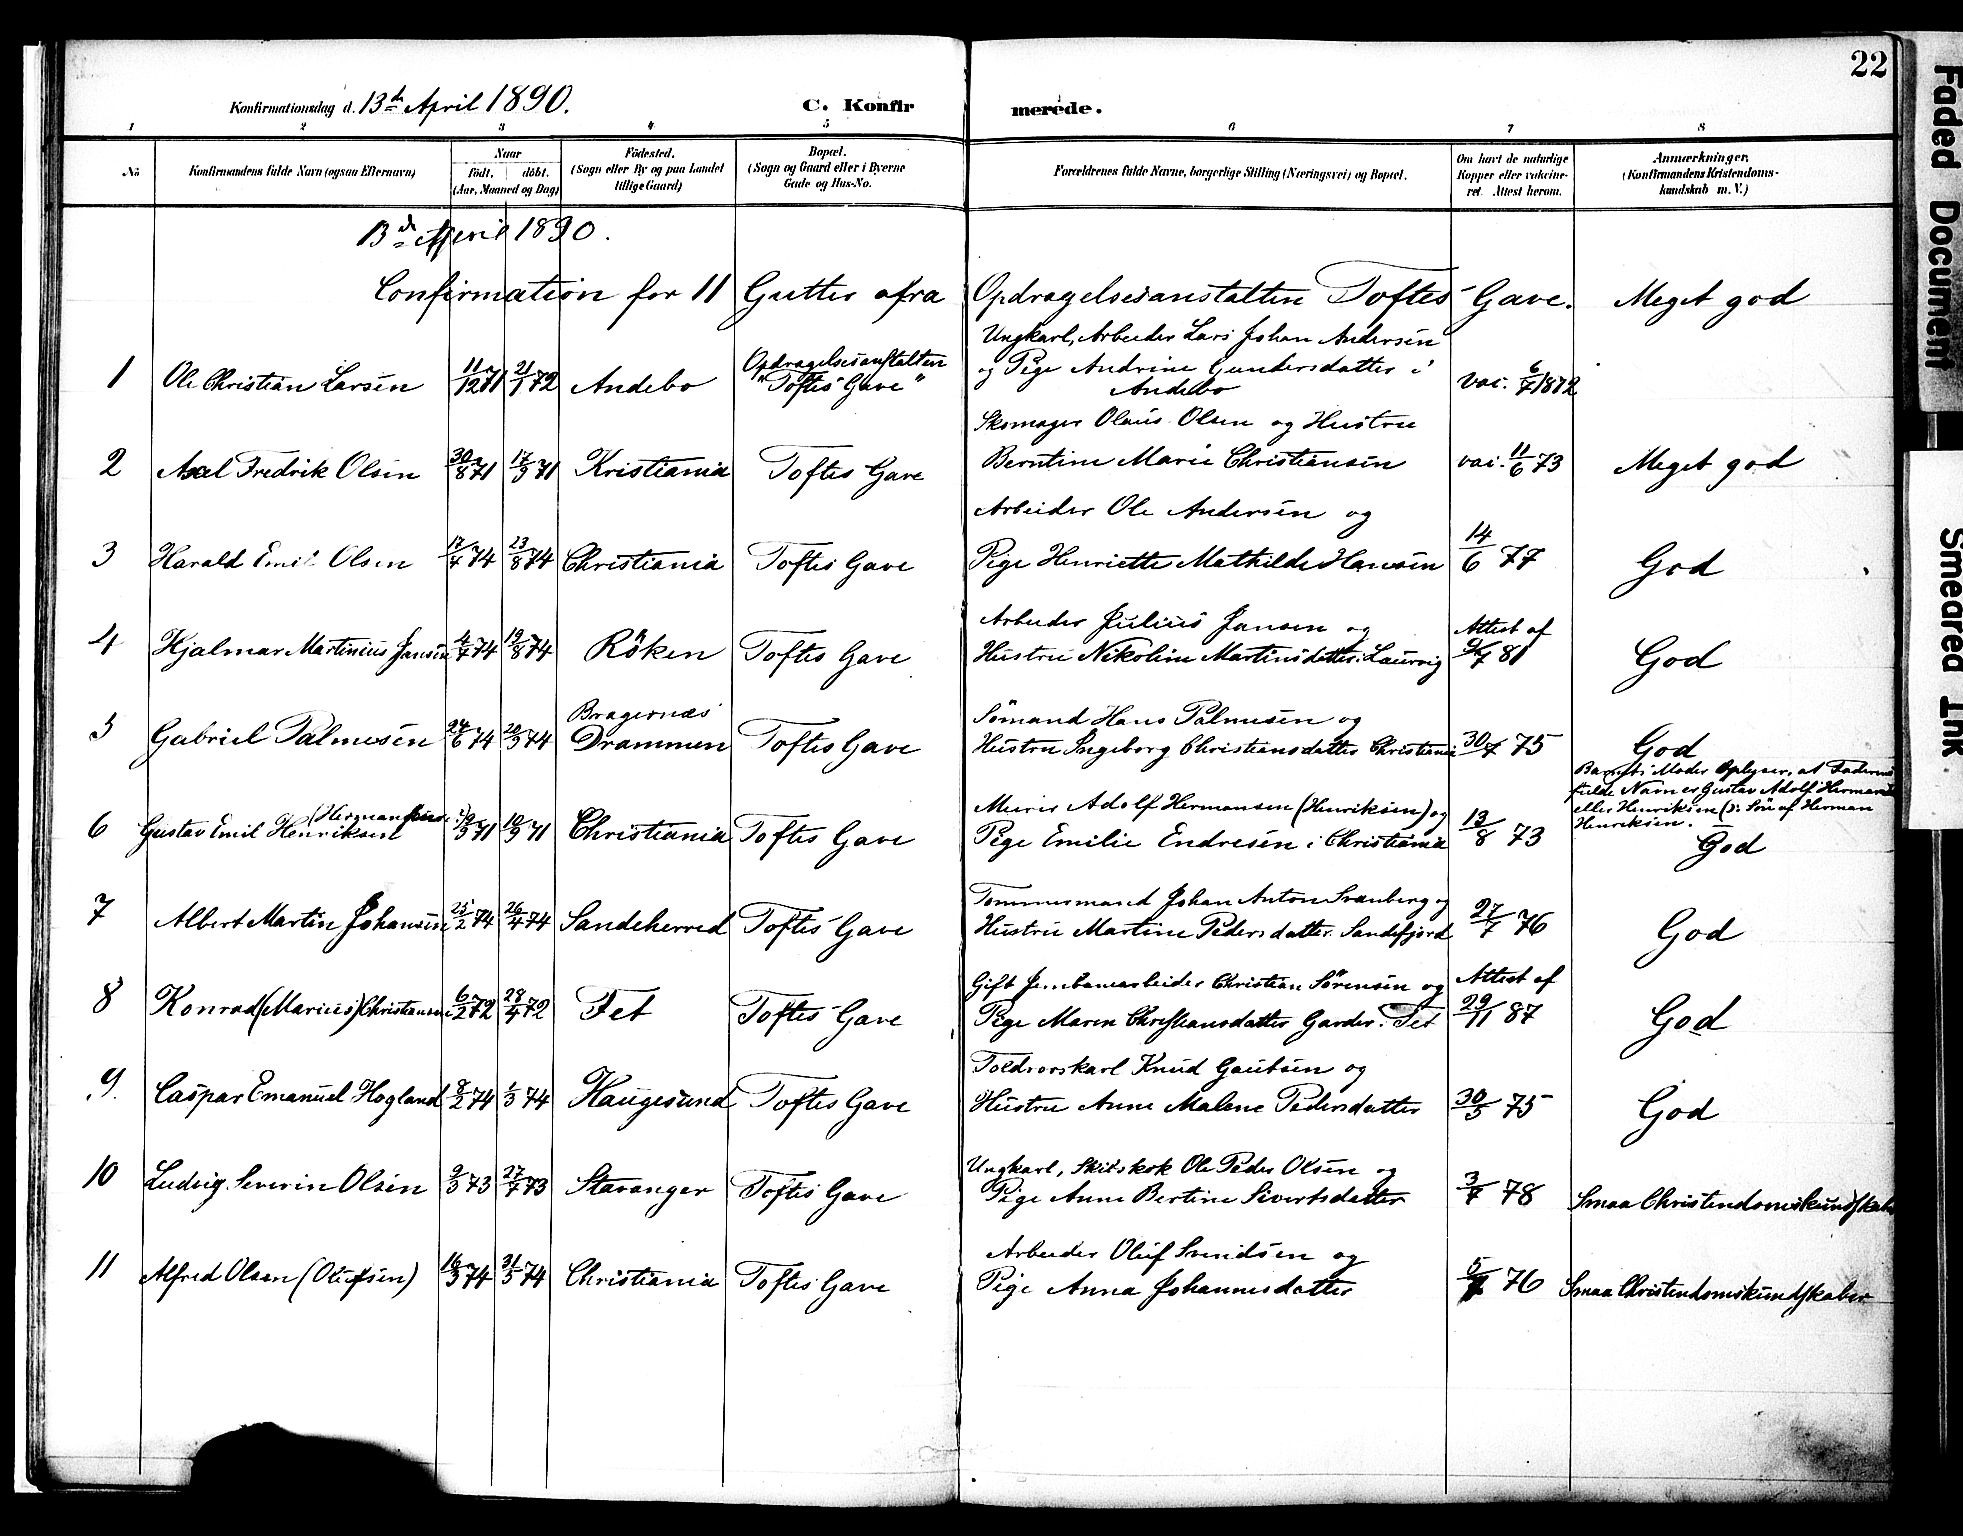 22
Konfirmationsdag d. 13de April 1890.
C. Konfirmerede.
1 2 3 4 5 6 7 8
No
Konfirmandens fulde Navn (ogsaa Efternavn)
Naar
Födt. döbt.
(Aar, Maaned og Dag)
Födested.
(Sogn eller By og paa Landet
tillige Gaard)
Bopæl.
(Sogn og Gaard eller i Byerne
Gade og Hus-No.
Forældrenes fulde Navne, borgerlige Stilling (Næringsvei) og Bopæl.
Om havt de naturlige
Kopper eller vakcine-
ret. Attest herom.
Anmærkninger.
(Konfirmandens Kristendoms-
kundskab m. V.)
13de April 1890.
Confirmation for 11 Gutter ofra Opdragelsesanstalten Toftes Gave. Meget god
Ungkarl, Arbeider Lars Johan Andersen
1 Ole Christian Larsen 11/12 71 21/1 72 Andebo Opdragelsesanstalten "Toftes Gave" og Pige Andrine Gundersdatter i Andebo vac. 6/7 1872
Skomager Olaus Olsen og Hustru
2 Axel Fredrik Olsen 30/8 71 17/9 71 Kristiania Toftes Gave Berntine Marie Christiansen vac. 11/6 73 Meget god
Arbeider Ole Andersen og
3 Harald Emil Olsen 17/4 74 23/8 74 Christiania Toftes Gave Pige Henriette Mathilde Hansen 14/6 77 God
Arbeider Julius Jansen og Attest af
4 Hjalmar Martinius Jansen 4/7 74 19/8 74 Röken Toftes Gave Hustru Nikoline Martinsdatter. Laurvig 9/7 81 God
Bragernæs Sömand Hans Palmesen og
5 Gabriel Palmesen 24/6 74 20/9 74 Drammen Toftes Gave Hustru Ingeborg Christiansdatter Christiania 30/7 75 God
Barnets Moder Oplyser, at Faderens
fulde Navn er Gustav Adolf Hermansen
eller Henriksen (ɔ: Sön af Herman
Henriksen.
(Hermansen) Murer Adolf Hermansen (Henriksen) og
6 Gustav Emil Henriksen 10/9 71 Christiania Toftes Gave Pige Emilie Endresen i Christiania 13/8 73 God
Tömmermand Johan Anton Svanberg og
7 Albert Martin Johansen 25/2 74 26/4 74 Sandeherred Toftes Gave Hustru Martine Pedersdatter. Sandefjord 27/7 76 God
Gift Jernbanearbeider Christian Sörensen og Attest af
8 Konrad (Marius) Christiansen 6/2 72 28/4 72 Fet Toftes Gave Pige Maren Christiansdatter Garder. Fet 29/11 87 God
Toldrorskarl Knud Gautsen og
9. Caspar Emanuel Hogland 8/2 74 1/3 74 Haugesund Toftes Gave Hustru Anne Malene Pedersdatter 30/5 75 God
Ungkarl, Skibskok Ole Peder Olsen og
10 Ludvig Severin Olsen 9/3 73 27/7 73 Stavanger Toftes Gave Pige Anne Bertine Sivertsdatter 3/7 78 Smaa Christendomskundskaber
Arbeider Oluf Svendsen og
11 Alfred Olsen (Olufsen) 16/3 74 31/5 74 Christiania Toftes Gave Pige Anna Johannesdatter 76 Smaa Christendomskundskaber
Faded Document
Smeared Ink.